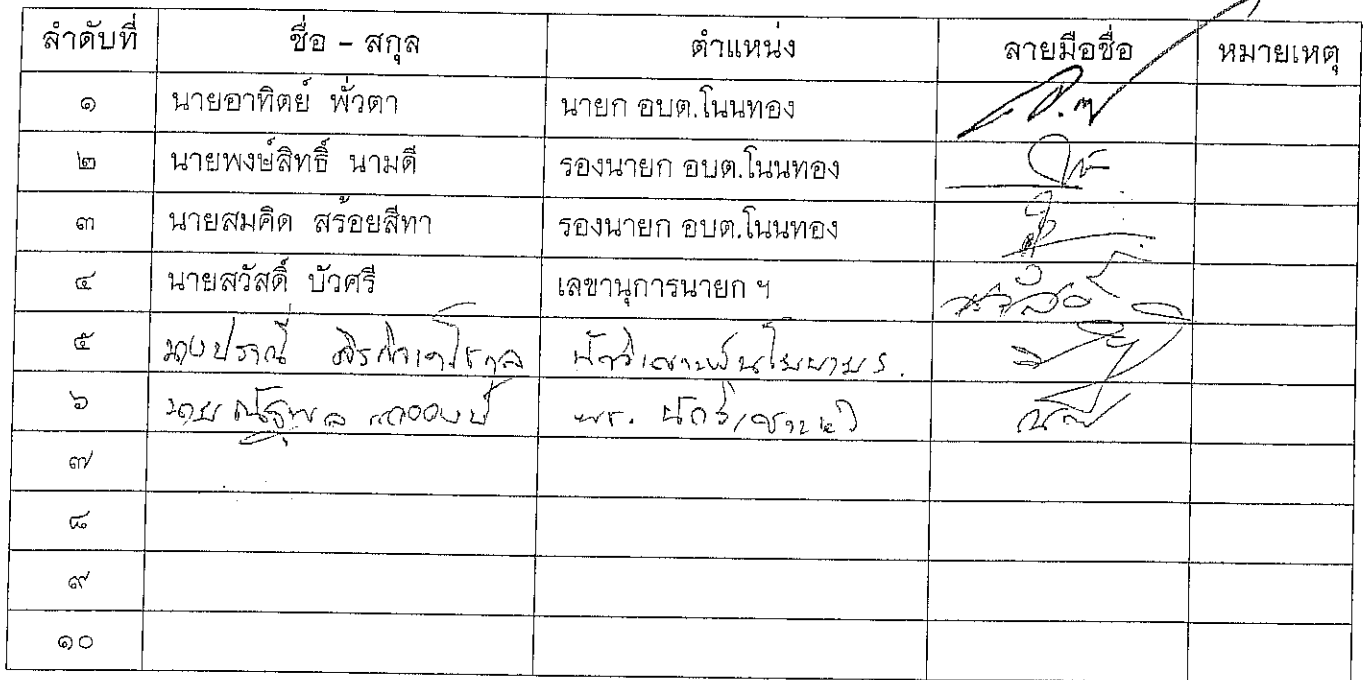 ลำดับที่ ชื่อ - สกุล ตำแหน่ง ลายมือชื่อ หมายเหตุ
๑ นายอาทิตย์ พั่วตา นายก อบต.โนนทอง
๒ นายพงษ์สิทธิ์ นามดี รองนายก อบต.โนนทอง
๓ นายสมคิด สร้อยสีทา รองนายก อบต.โนนทอง
๔ นายสวัสดิ์ บัวศรี เลขานุการนายก ฯ
๕ นางปราณี
๖ นายณัฐพล
๗
๘
๙
๑๐